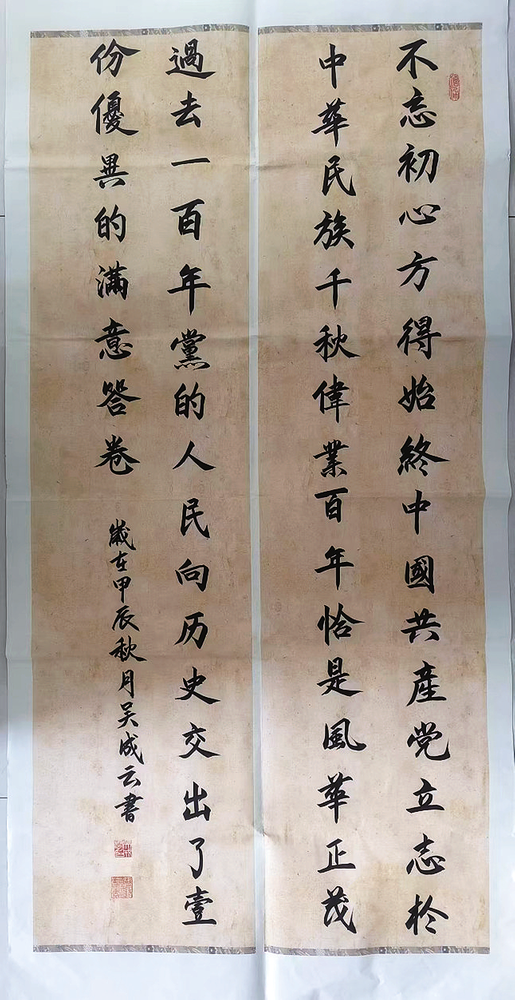 不忘初心方得始終中國共産党立志於
中華民族千秋偉業百年恰是風華正茂
過去一百年黨的人民向历史交出了壹
份優異的滿意答卷
歲在甲辰秋月吴成云書